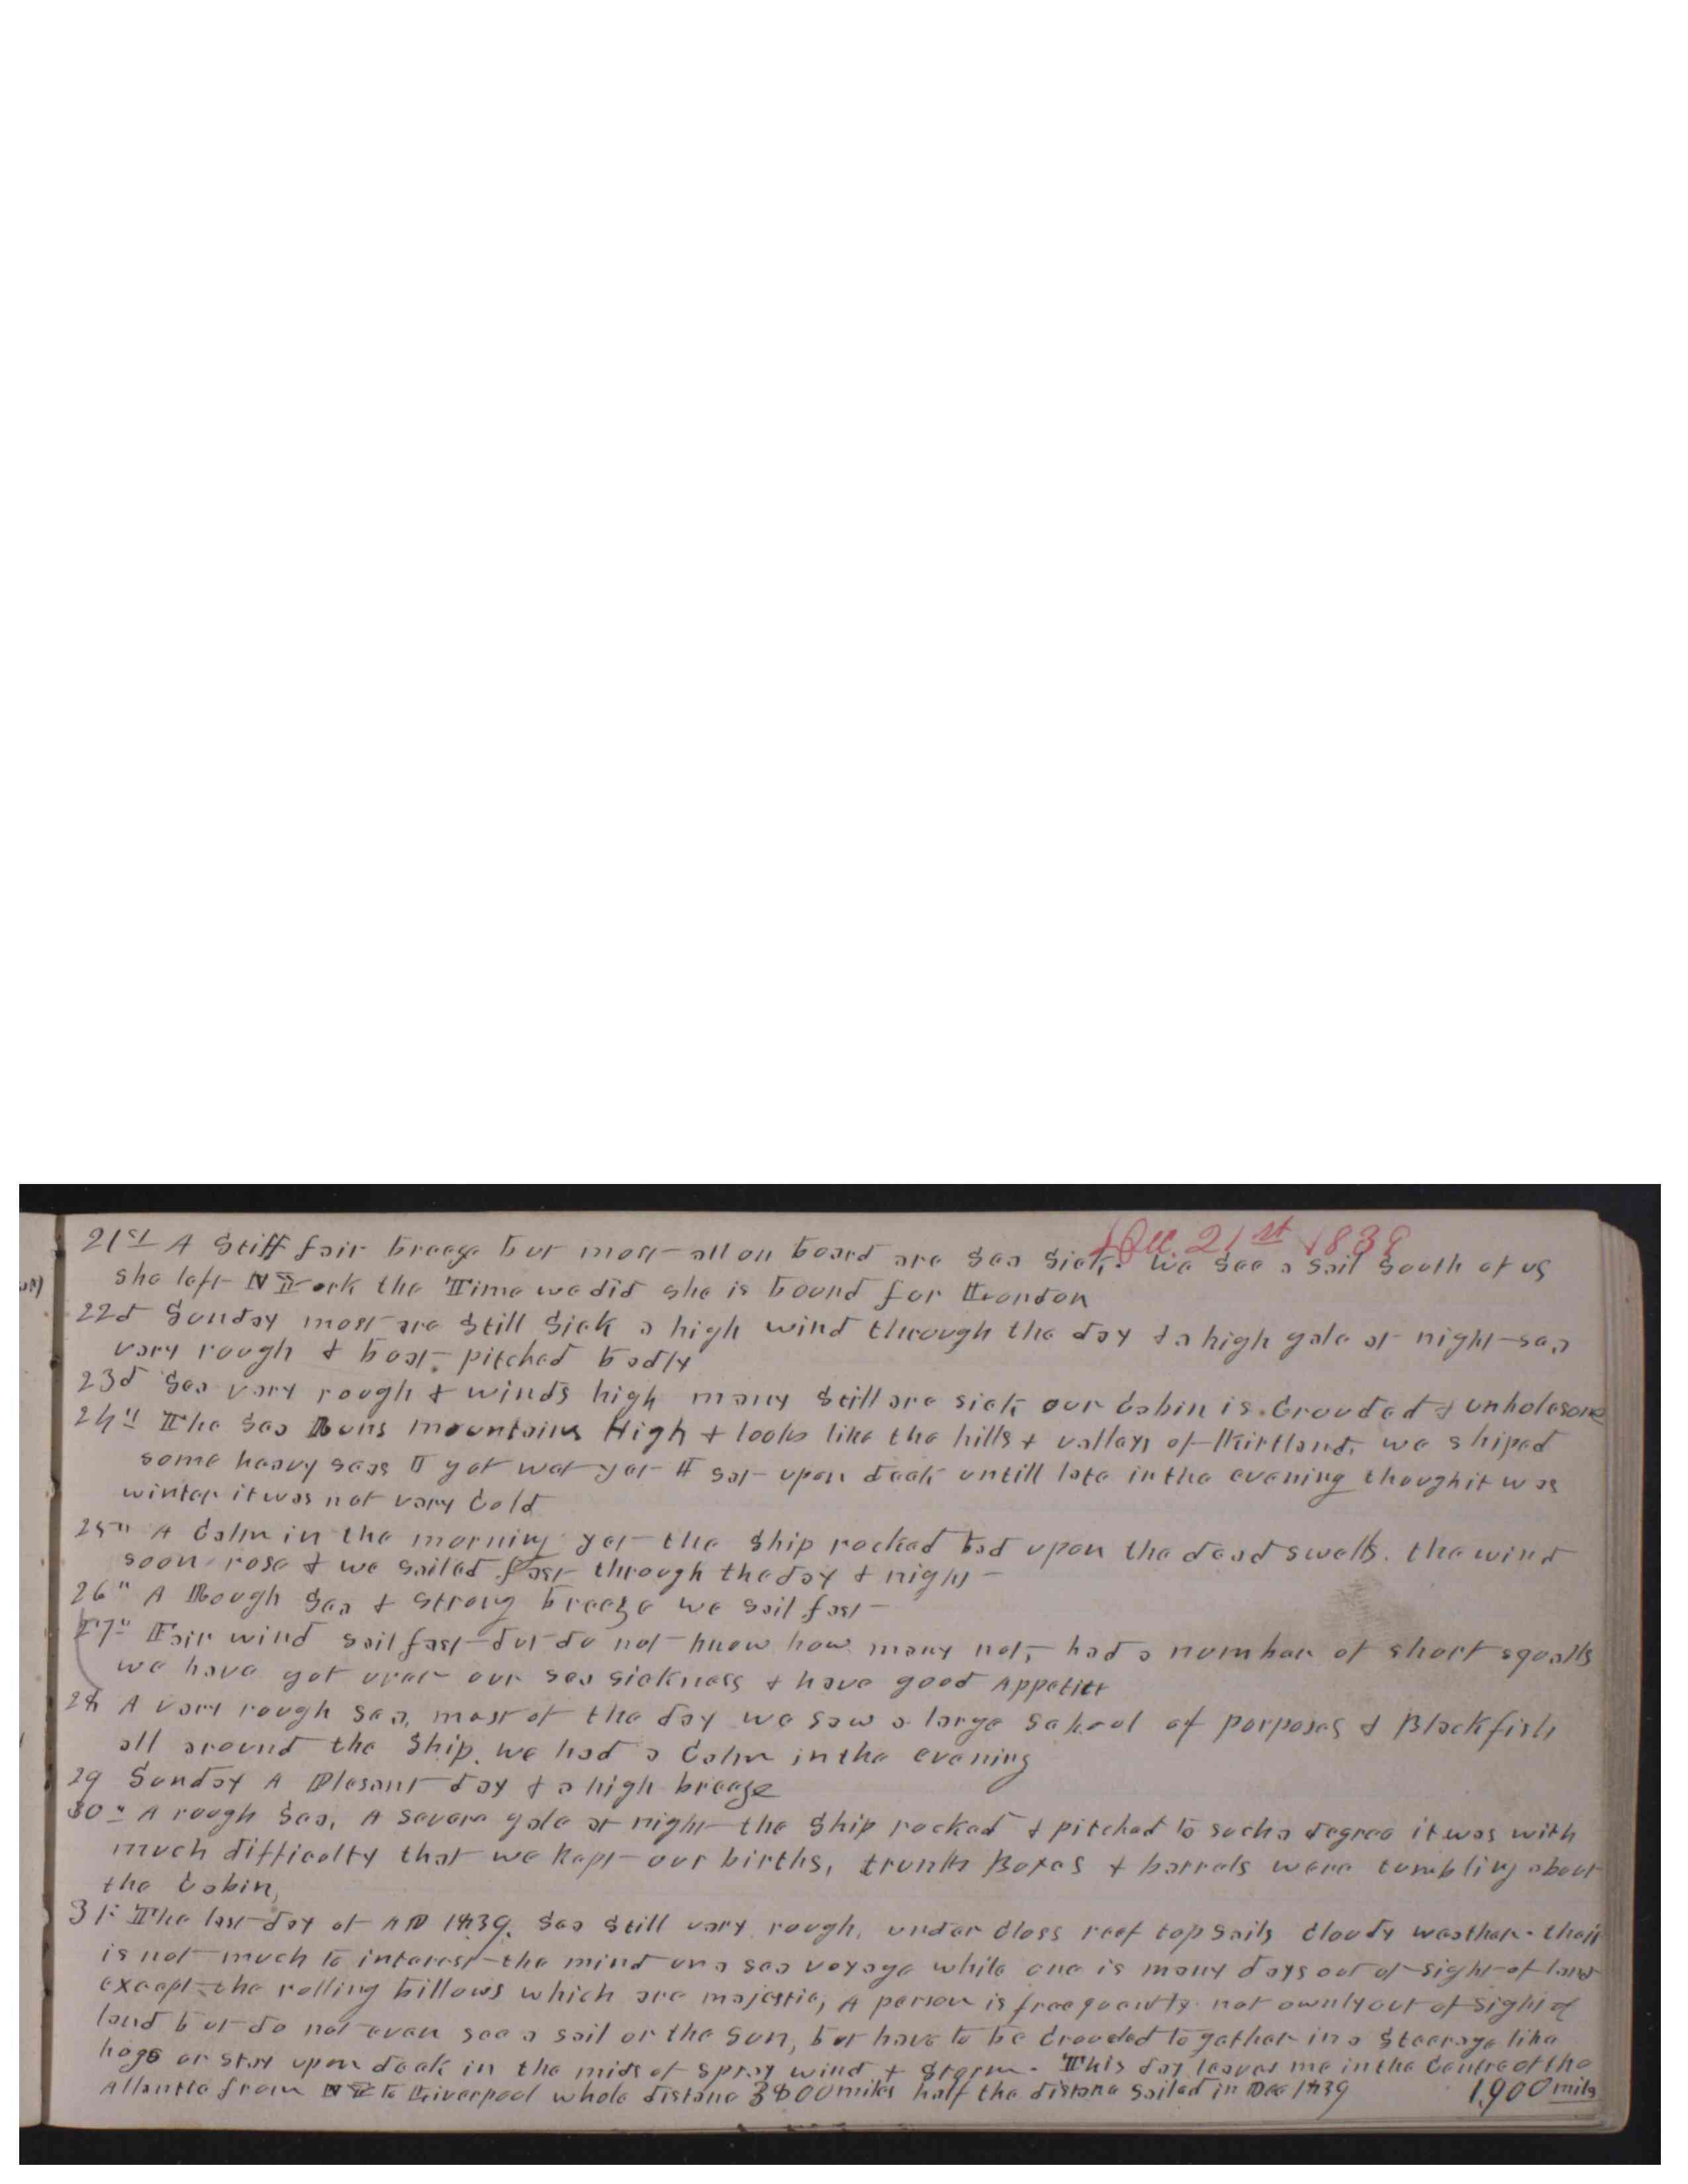 Dec. 21st 1839
21st A Stiff fair breeze but most all on board are Sea Sick. We See a Sail South of us
she left NYork the Time we did she is bound for London
22d Sunday most are Still Sick a high wind through the day & a high gale at night sea
very rough & boat pitched badly
23d Sea very rough & winds high many Still are sick our Cabin is Crouded & unholesome
24th The Sea Runs mountains High & looks like the hills & valleys of Kirtland, we shiped
some heavy seas I got wet yet I sat upon deck untill late in the evening though it was
winter it was not very Cold
25th A Calm in the morning yet the Ship rocked bad upon the dead swells. the wind
soon rose & we Sailed fast through the day & night
26th A Rough Sea & Strong breeze we Sail fast
27th Fair wind sail fast but do not know how many not, had a number of short squalls
we have got over our sea sickness & have good Appetite
28 A very rough Sea, most of the day we saw a large School of porposes & Blackfish
all around the Ship. we had a Calm in the evening
29 Sunday A Plesant day & a high breeze
30th A rough Sea, A Severe gale at night the Ship rocked & pitched to such a degree it was with
much difficulty that we Kept our births, trunks Boxes & barrels were tumbling about
the Cabin,
31st The last day of AD 1839. Sea Still very rough, under Closs reef topSails Cloudy weather. their
is not much to interest the mind on a sea voyage while one is many days out of sight of land
except the rolling billows which are majestic, A person is freequently not ownly out of Sight of
land but do not even see a sail or the Sun, but have to be Crouded to gether in a Steerage like
hogs or stay upon deck in the mids of spray wind & Storm. This day leaves me in the Centre of the
Atlantic from NY to Liverpool whole distane 3800 miles half the distane Sailed in Dec 1839 1,900 mils